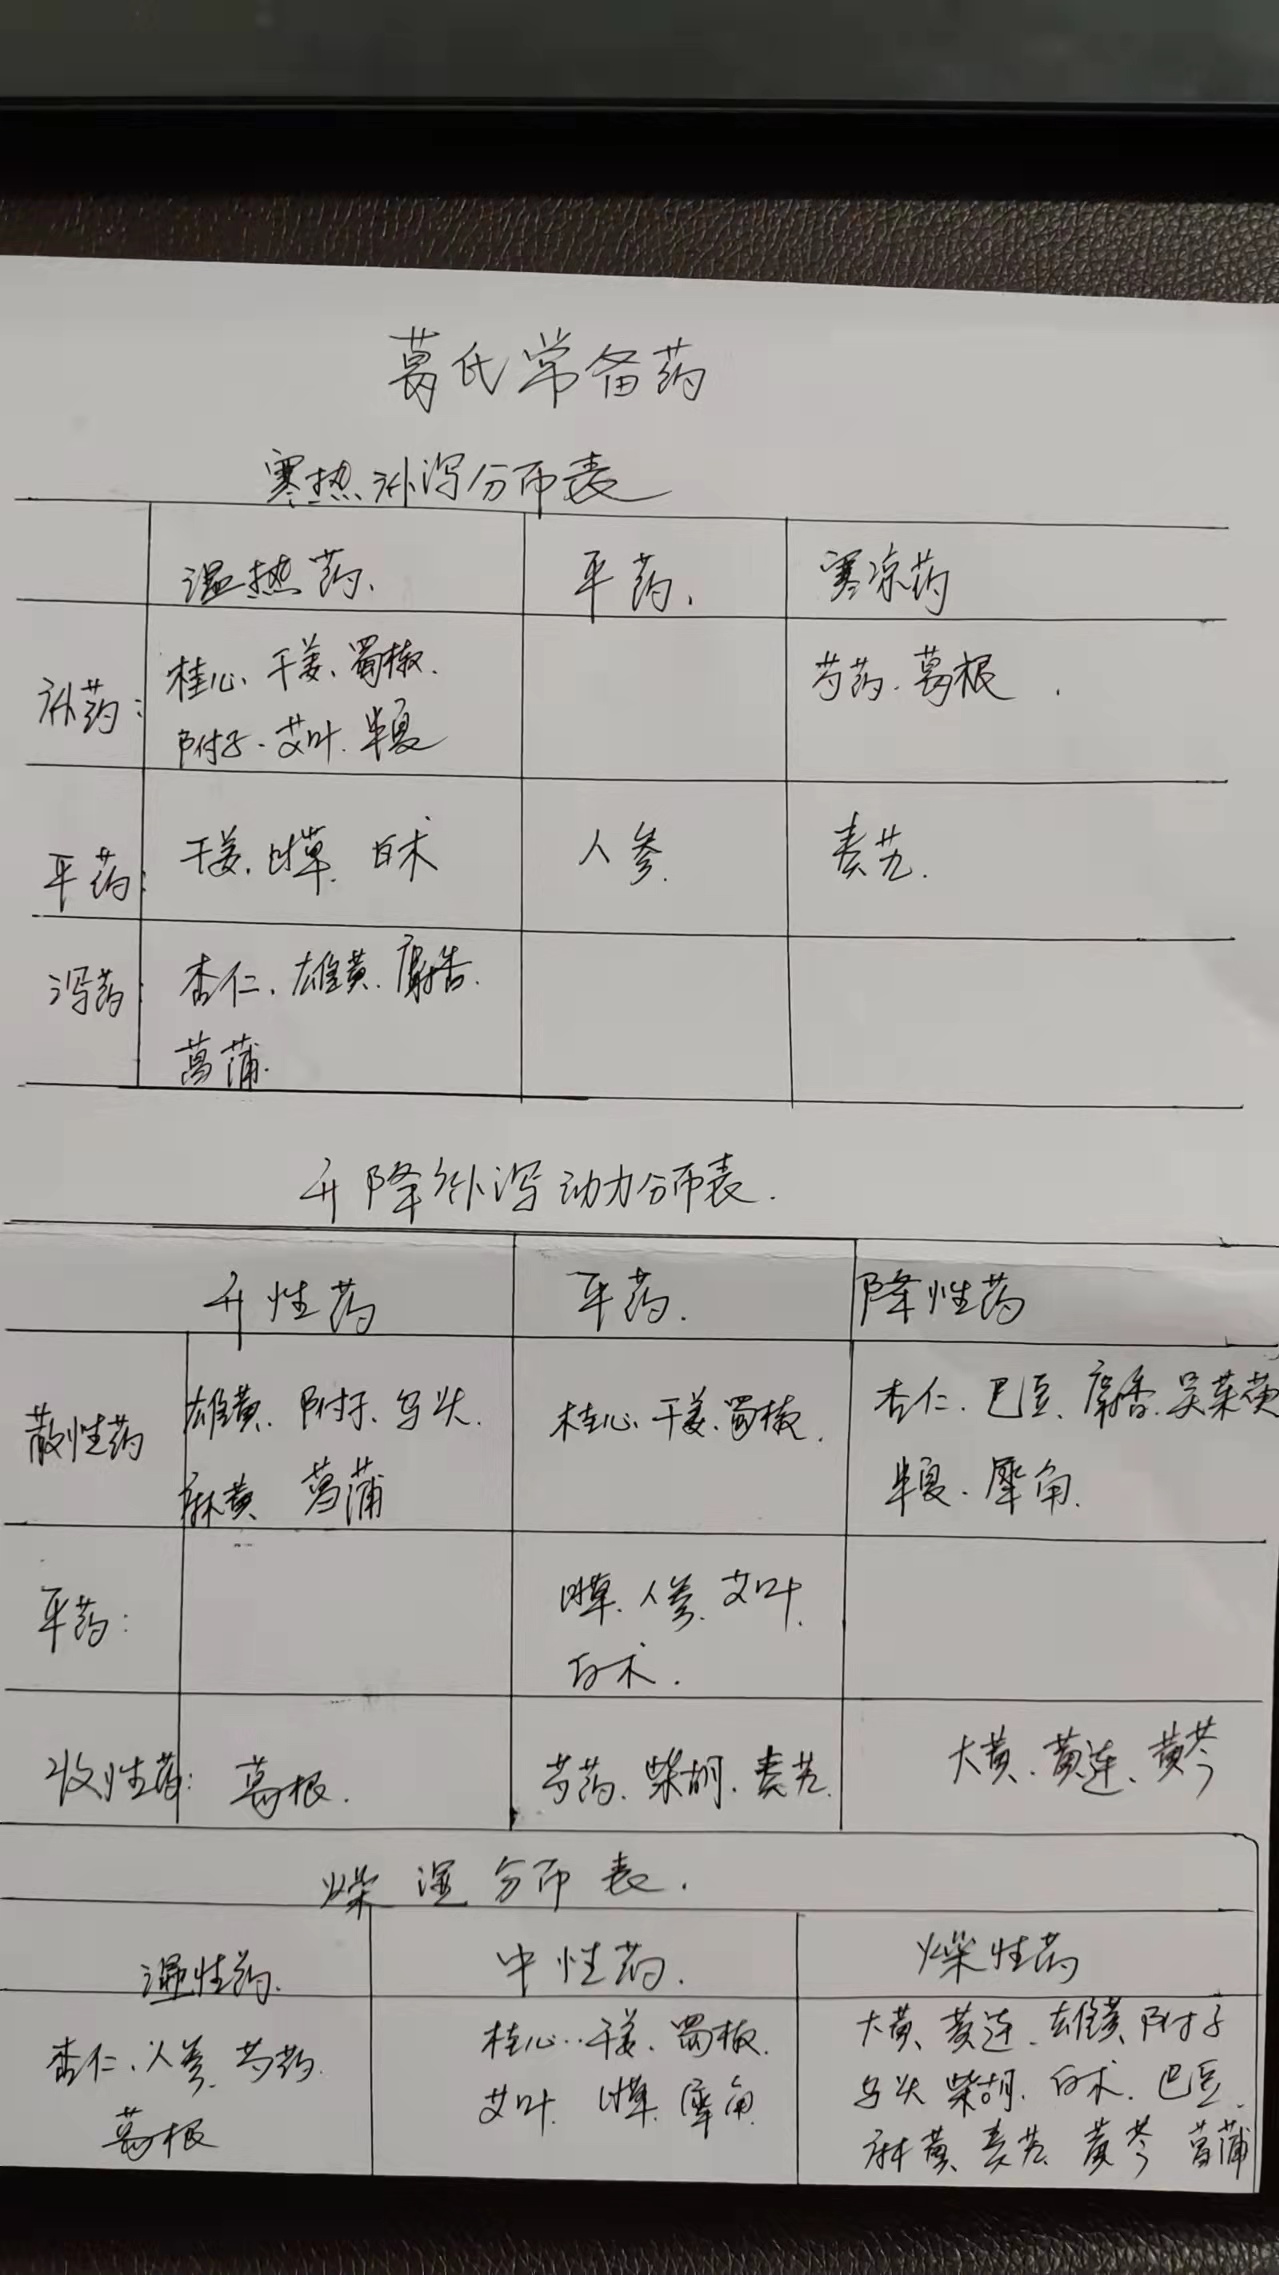 葛氏常备药
寒热补泻分布表
温热药、 平药、 寒凉药
补药： 桂心、干姜、蜀椒、 芍药、葛根、
附子、艾叶、半夏
平药： 干姜、甘草、白术 人参、 秦艽、
泻药： 杏仁、雄黄、麝香、
菖蒲、
升降补泻动力分布表、
升性药 平药、 降性药
散性药 雄黄、附子、乌头、 桂心、干姜、蜀椒、 杏仁、巴豆、麝香、吴茱萸
麻黄 菖蒲 半夏、犀角、
平药： 甘草、人参、艾叶、
白术、
收性药： 葛根、 芍药、柴胡、秦艽、 大黄、黄连、黄芩
燥湿分布表、
湿性药、 中性药、 燥性药
杏仁、人参、芍药、 桂心、干姜、蜀椒、 大黄、黄连、雄黄、附子
葛根 艾叶、甘草、犀角、 乌头 柴胡、白术、巴豆、
麻黄、秦艽、黄芩 菖蒲